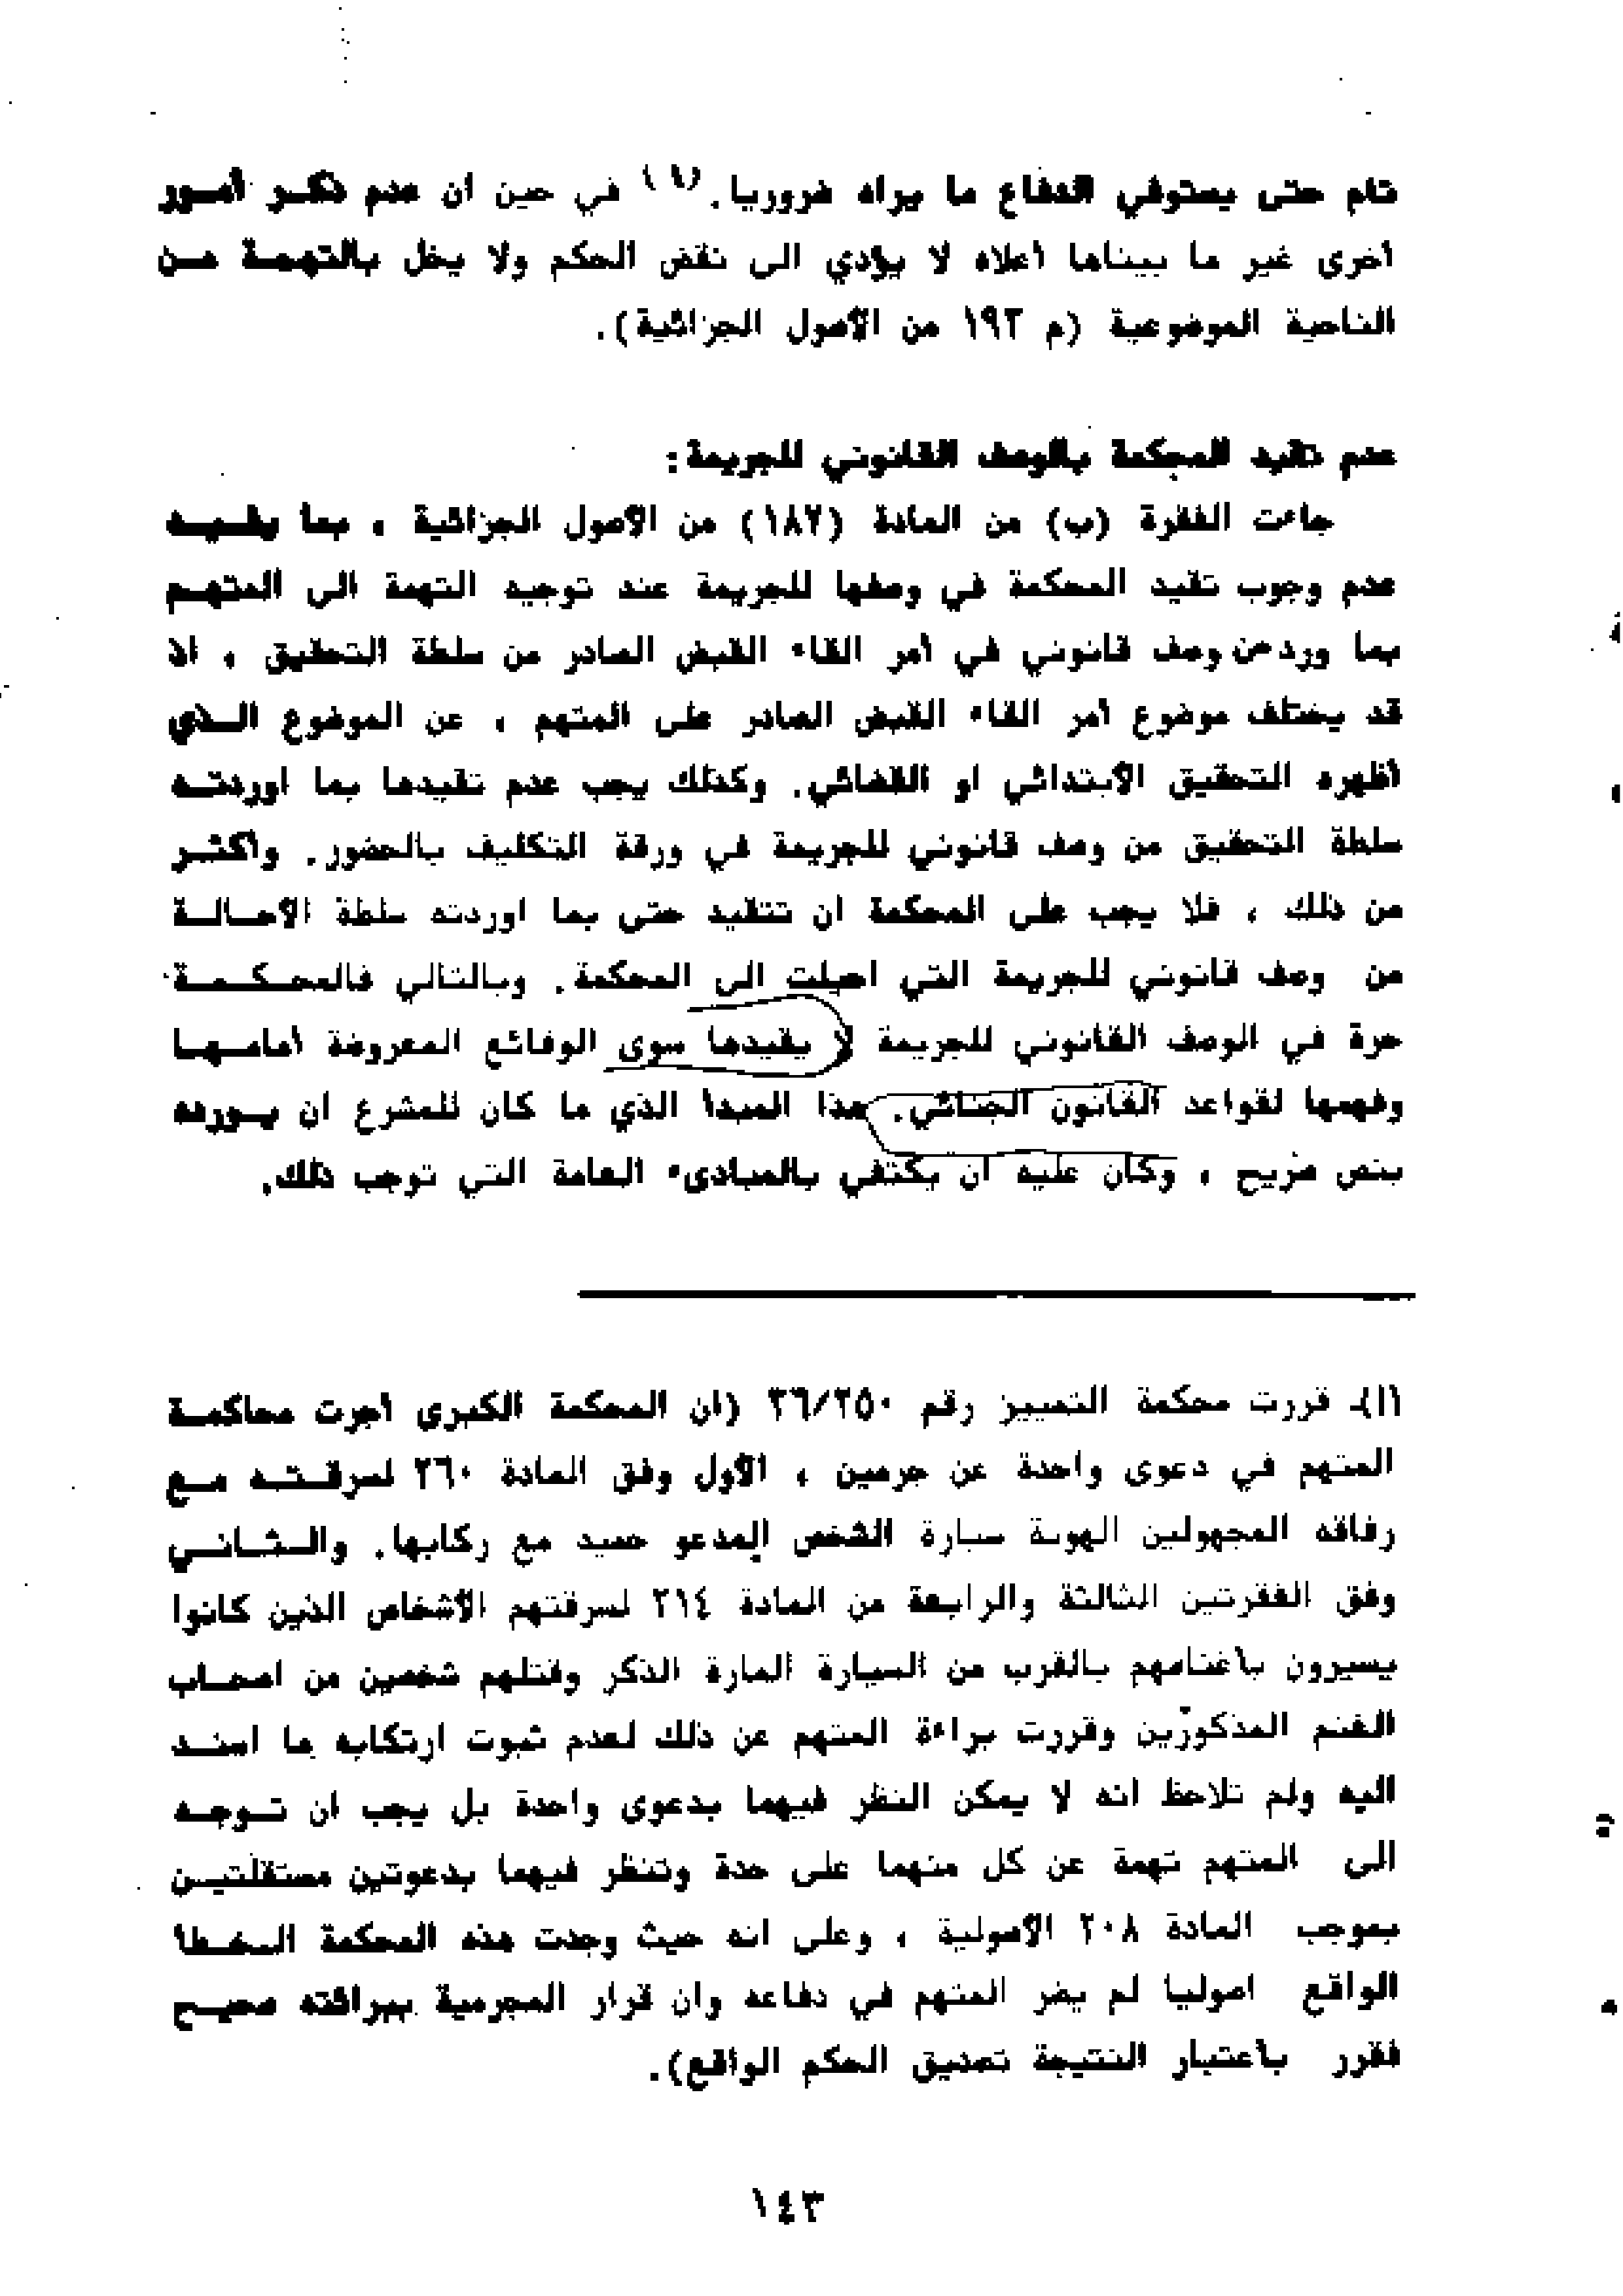 تام حتى يستوفي الدفاع ما يراه ضروريا.(١) في حين ان عدم ذكــر أمــور
اخرى غير ما بيناها اعلاه لا يؤدي الى نقض الحكم ولا يخل بالتهمــة مــن
الناحية الموضوعية (م ١٩٢ من الأصول الجزائية).
عدم تقيد المحكمة بالوصف القانوني للجريمة:
جاءت الفقرة (ب) من المادة (١٨٧) من الأصول الجزائية ، بما يفــيــد
عدم وجوب تقيد المحكمة في وصفها للجريمة عند توجيه التهمة الى المتهــم
بما ورد من وصف قانوني في أمر القاء القبض الصادر من سلطة التحقيق ، اذ
قد يختلف موضوع أمر القاء القبض الصادر على المتهم ، عن الموضوع الــذي
أظهره التحقيق الأبتدائي او القضائي. وكذلك يجب عدم تقيدها بما اوردتــه
سلطة التحقيق من وصف قانوني للجريمة في ورقة التكليف بالحضور. وأكثــر
من ذلك ، فلا يجب على المحكمة ان تتقيد حتى بما اوردته سلطة الأحــالــة
من وصف قانوني للجريمة التي احيلت الى المحكمة. وبالتالي فالمحــكــمــة
حرة في الوصف القانوني للجريمة لا يقيدها سوى الوقائع المعروضة أمامــهــا
وفهمها لقواعد القانون الجنائي. هذا المبدأ الذي ما كان للمشرع ان يــورده
بنص صريح ، وكان عليه ان يكتفي بالمبادىء العامة التي توجب ذلك.
(١)ـ قررت محكمة التمييز رقم ٣٦/٢٥٠ (ان المحكمة الكبرى أجرت محاكمــة
المتهم في دعوى واحدة عن جرمين ، الأول وفق المادة ٢٦٠ لسرقــتــه مــع
رفاقه المجهولين الهوية سيارة الشخص المدعو حميد مع ركابها. والــثــانــي
وفق الفقرتين الثالثة والرابعة من المادة ٢١٤ لسرقتهم الأشخاص الذين كانوا
يسيرون بأغنامهم بالقرب من السيارة المارة الذكر وقتلهم شخصين من اصحــاب
الغنم المذكورين وقررت براءة المتهم عن ذلك لعدم ثبوت ارتكابه ما اسنــد
اليه ولم تلاحظ انه لا يمكن النظر فيهما بدعوى واحدة بل يجب ان تــوجــه
الى المتهم تهمة عن كل منهما على حدة وتنظر فيهما بدعوتين مستقلتيــن
بموجب المادة ٢٠٨ الأصولية ، وعلى انه حيث وجدت هذه المحكمة الــخــطأ
الواقع اصوليا لم يضر المتهم في دفاعه وان قرار المجرمية ببرائته صحيــح
فقرر بأعتبار النتيجة تصديق الحكم الواقع).
١٤٣